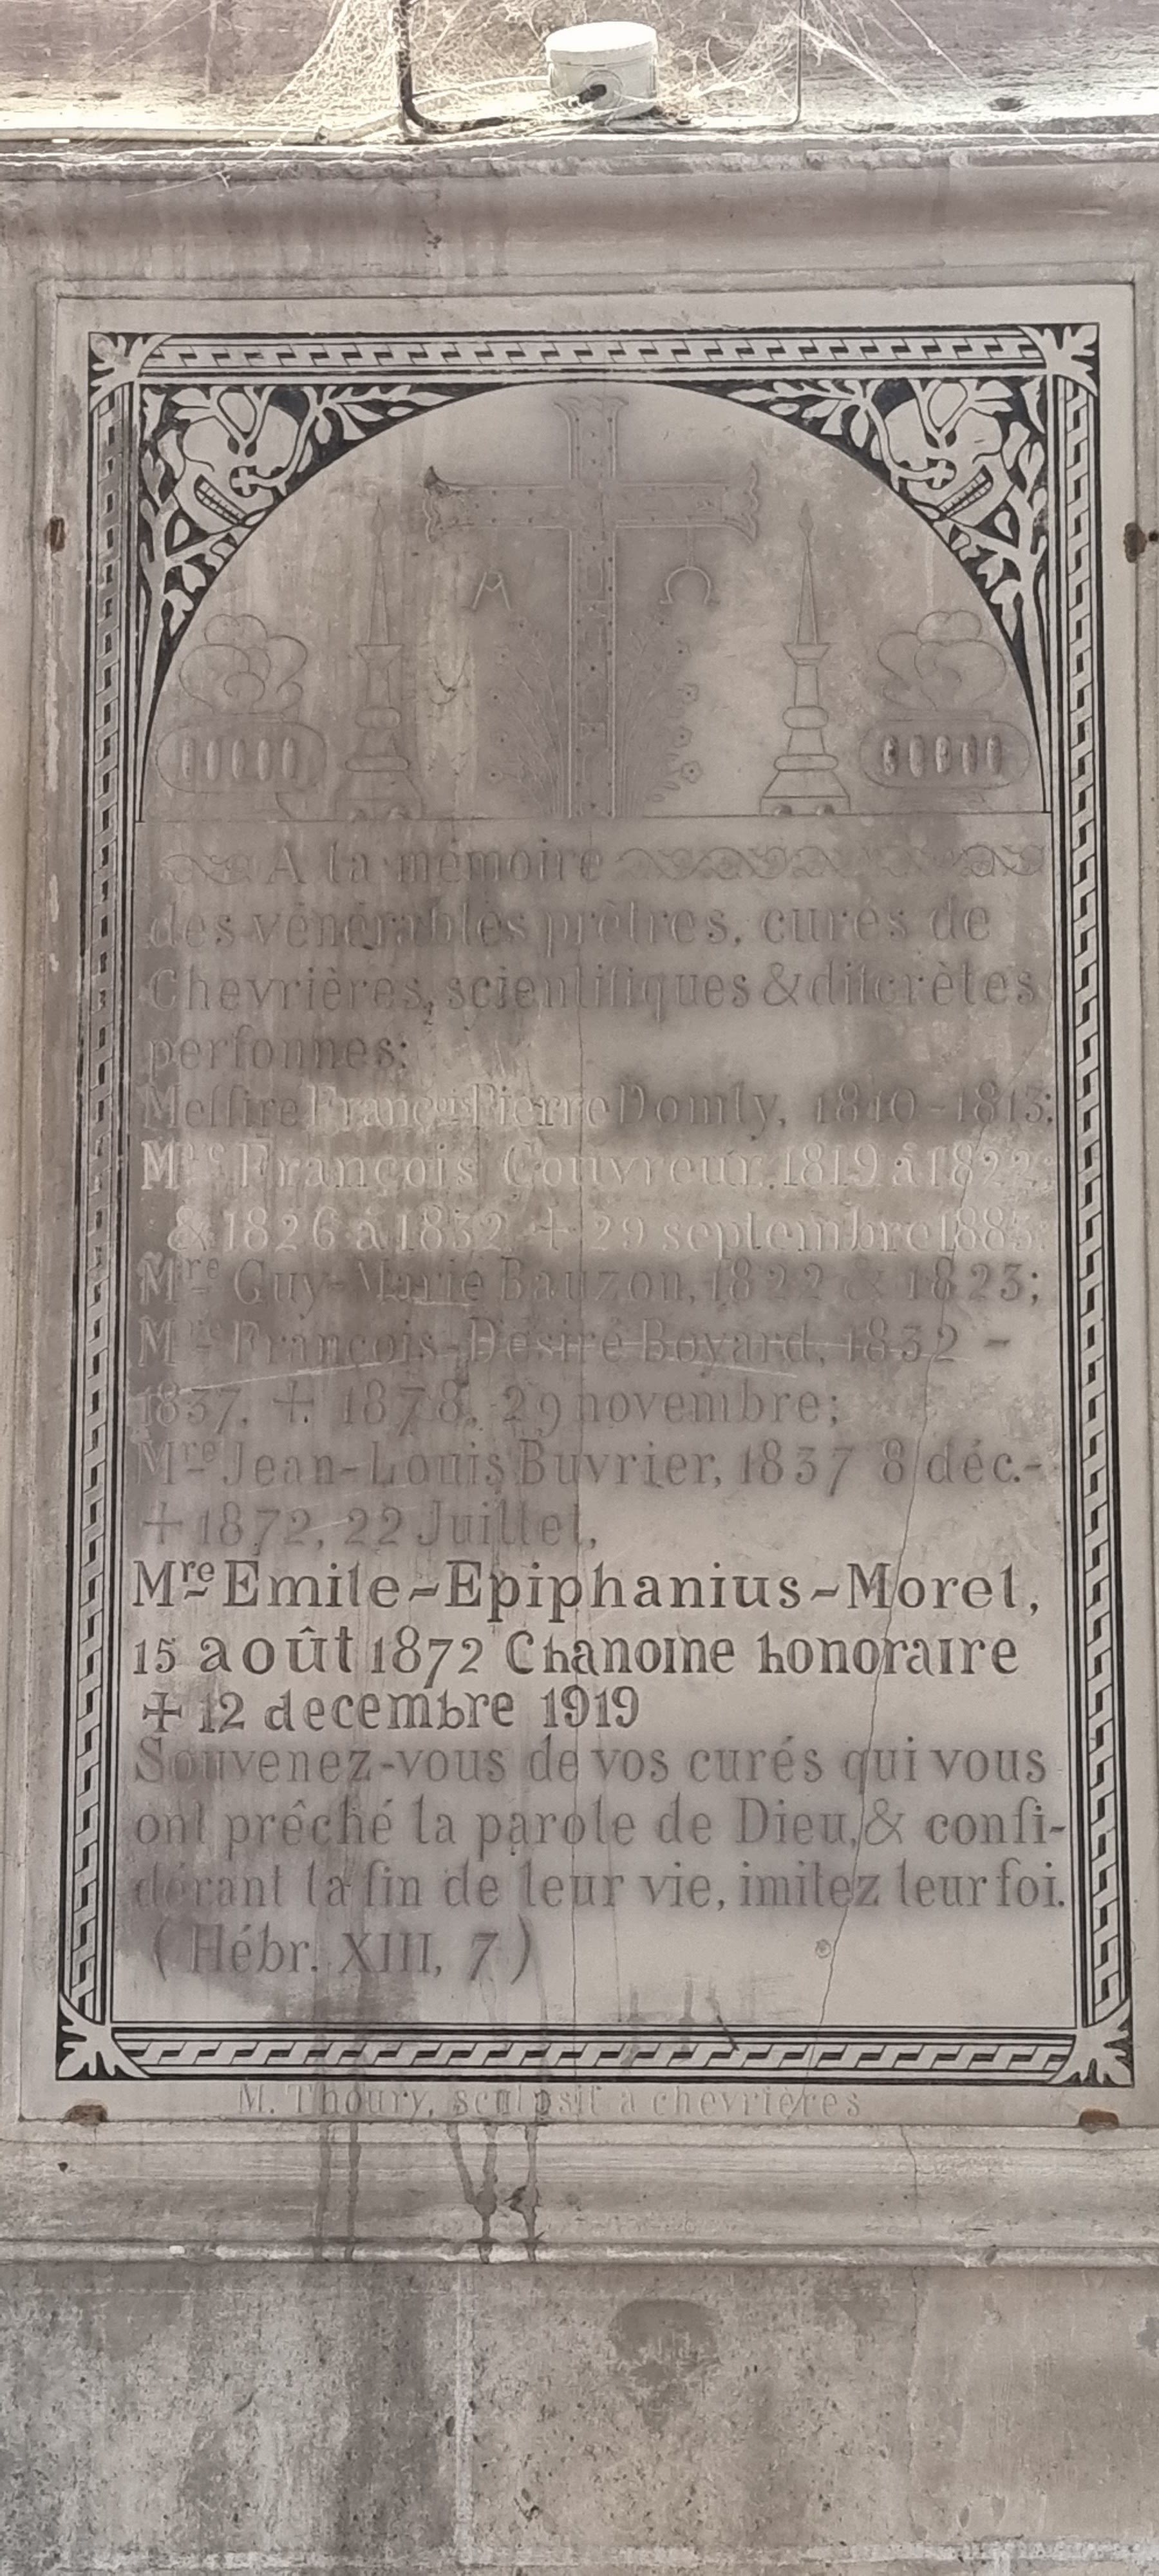 Α Ω
A la mémoire
des vénérables prêtres, curés de
Chevrières, scientifiques & diſcrètes
perſonnes:
Meſſire Franç.s Pierre Domly, 1810-1813;
Mre François Couvreur, 1819 à 1822,
& 1826 à 1832 + 29 septembre 1883;
Mre Guy-Marie Bauzon, 1822 & 1823;
Mre François-Désiré Boyard, 1832 -
1837, + 1878, 29 novembre;
Mre Jean-Louis Buvrier, 1837 8 déc.-
+ 1872, 22 Juillet,
Mre Emile-Epiphanius-Morel,
15 août 1872 Chanoine honoraire
+ 12 decembre 1919
Souvenez-vous de vos curés qui vous
ont prêché la parole de Dieu, & conſi-
dérant la fin de leur vie, imitez leur foi.
(Hébr. XIII, 7)
M. Thoury, sculpsit a chevrières